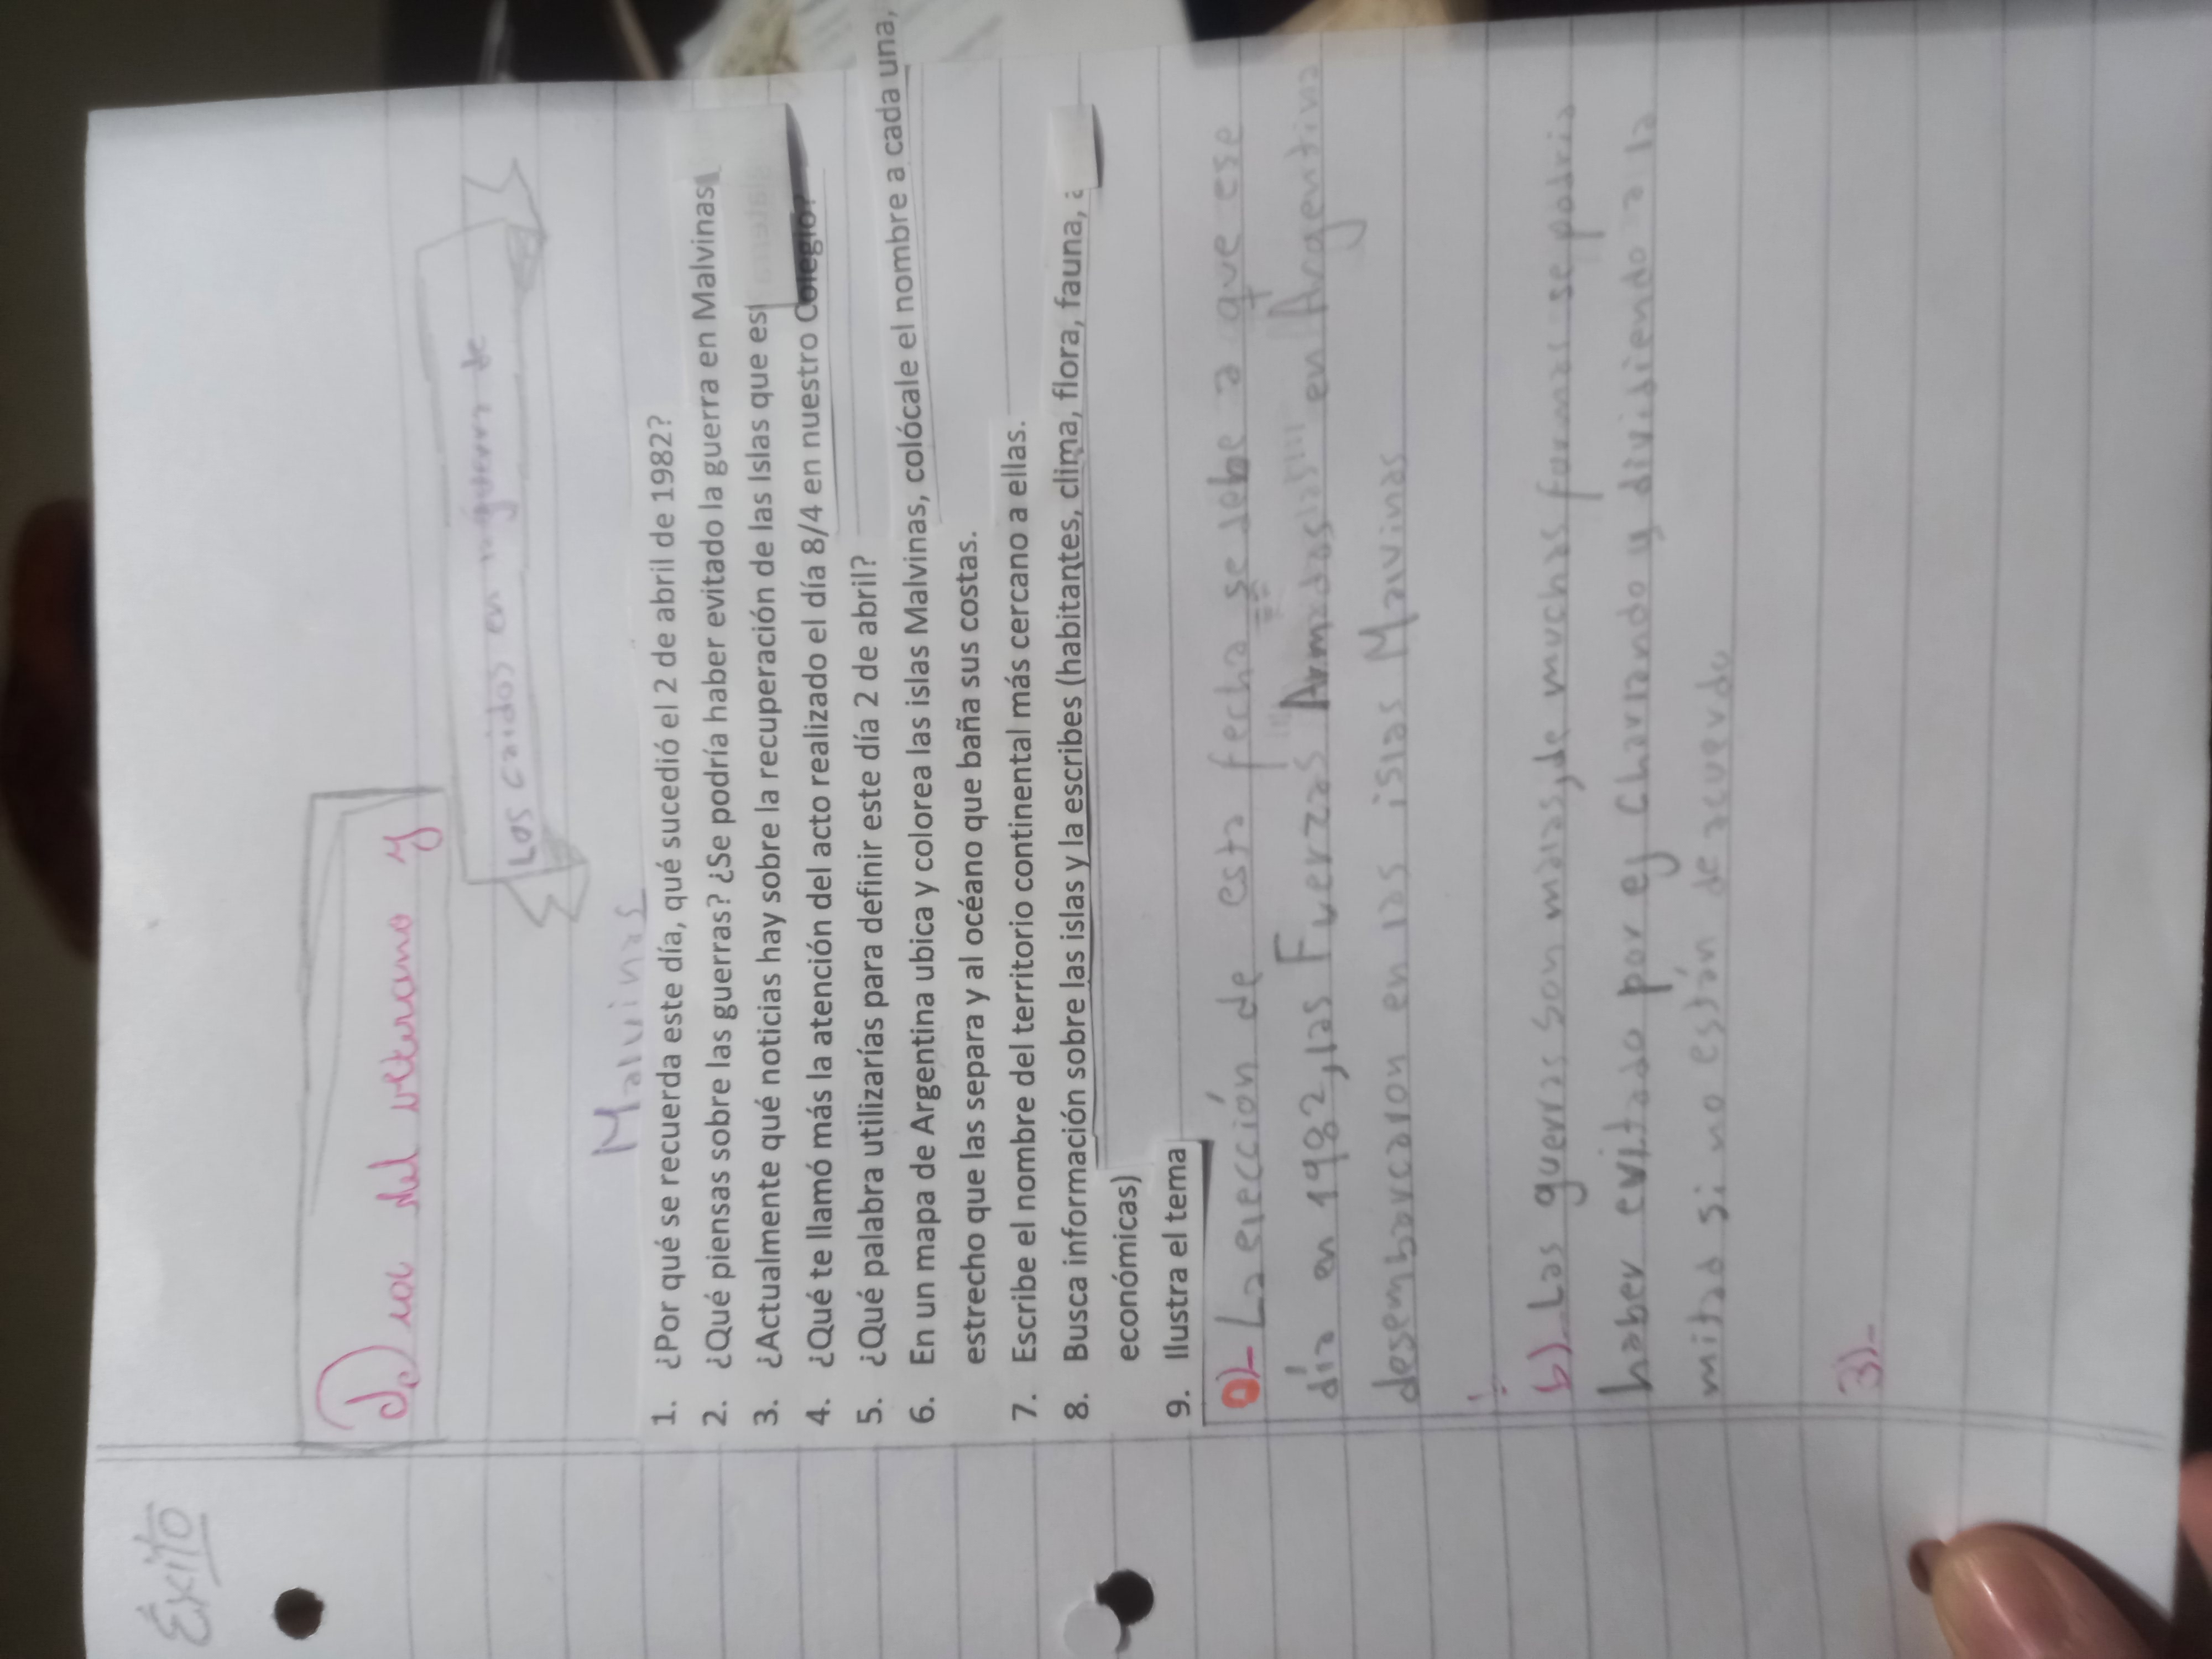 Éxito
Día del veterano y
Los caidos en la guerra de
Malvinas
1. ¿Por qué se recuerda este día, qué sucedió el 2 de abril de 1982?
2. ¿Qué piensas sobre las guerras? ¿Se podría haber evitado la guerra en Malvinas
3. ¿Actualmente qué noticias hay sobre la recuperación de las Islas que es
4. ¿Qué te llamó más la atención del acto realizado el día 8/4 en nuestro Colegio?
5. ¿Qué palabra utilizarías para definir este día 2 de abril?
6. En un mapa de Argentina ubica y colorea las islas Malvinas, colócale el nombre a cada una,
estrecho que las separa y al océano que baña sus costas.
7. Escribe el nombre del territorio continental más cercano a ellas.
8. Busca información sobre las islas y la escribes (habitantes, clima, flora, fauna, a
económicas)
9. Ilustra el tema
a)- La elección de esta fecha se debe a que ese
día en 1982, las Fuerzas Armadas en Argentina
desembarcaron en las islas Malvinas
b)- Las guerras son malas, de muchas formas se podria
haber evitado por ej charlando y dividiendo a la
mitad si no están de acuerdo
3)-